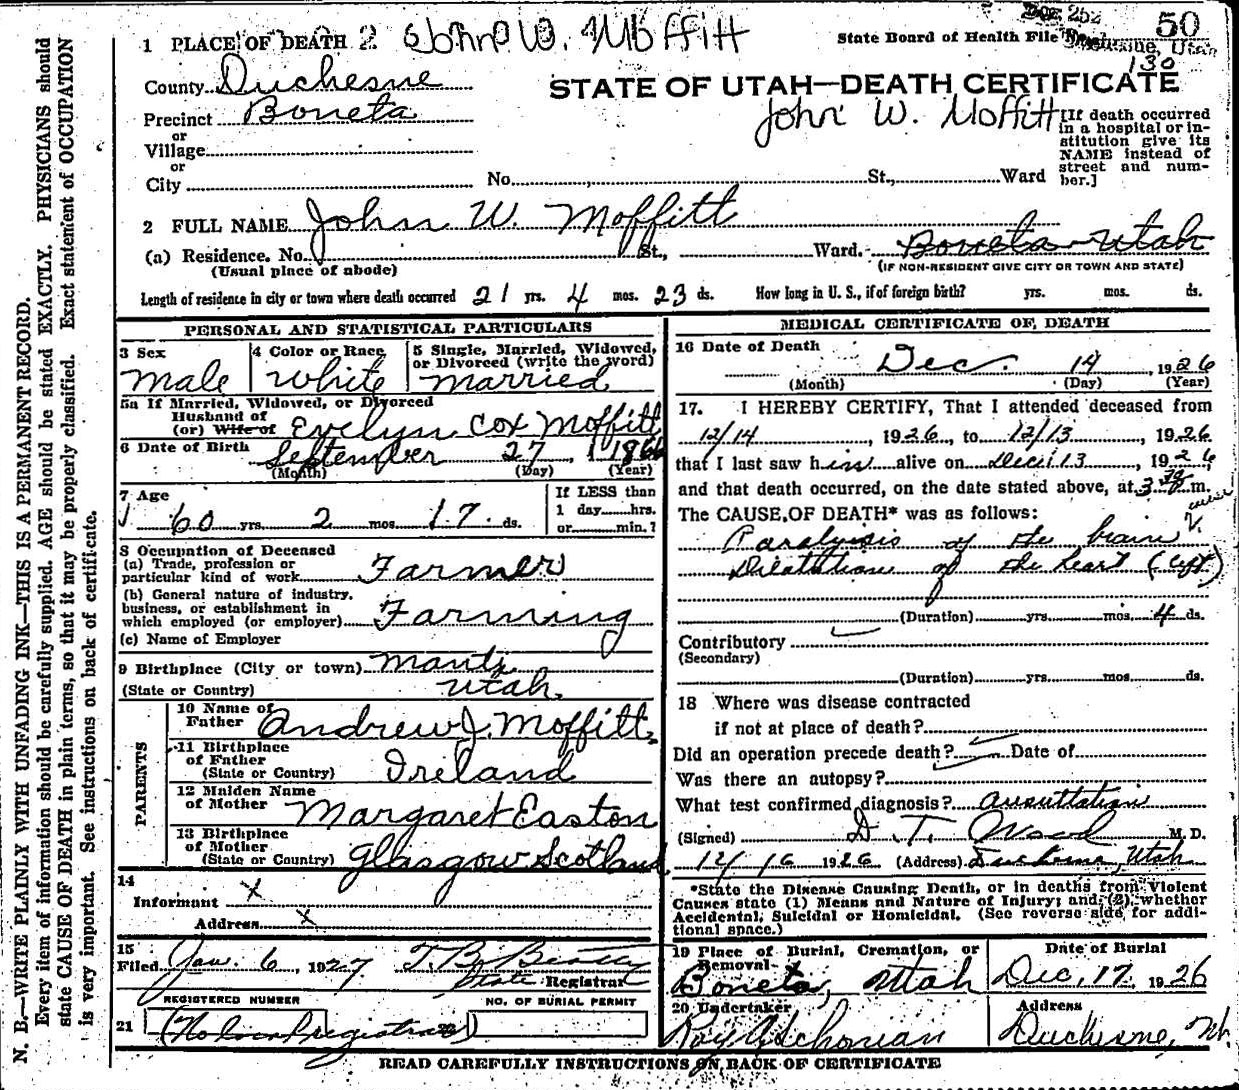 1 PLACE OF DEATH 2 John W. Moffitt
State Board of Health File No. 50
Duchesne, Utah
130
County Duchesne
STATE OF UTAH—DEATH CERTIFICATE
Precinct Boneta
John W. Moffitt
[If death occurred in a hospital or institution give its NAME instead of street and number.]
or
Village
or
City No. St., Ward
2 FULL NAME John W. Moffitt
(a) Residence. No. St., Ward. Boneta Utah
(Usual place of abode) (IF NON-RESIDENT GIVE CITY OR TOWN AND STATE)
Length of residence in city or town where death occurred 21 yrs. 4 mos. 23 ds. How long in U. S., if of foreign birth? yrs. mos. ds.
PERSONAL AND STATISTICAL PARTICULARS
3 Sex
Male
4 Color or Race
White
5 Single, Married, Widowed,
or Divorced (write the word)
Married
5a If Married, Widowed, or Divorced
Husband of
(or) Wife of Evelyn Cox Moffitt
6 Date of Birth September 27, 1866
(Month) (Day) (Year)
7 Age
60 yrs. 2 mos. 17 ds.
If LESS than
1 day hrs.
or min.?
8 Occupation of Deceased
(a) Trade, profession or
particular kind of work Farmer
(b) General nature of industry,
business, or establishment in
which employed (or employer) Farming
(c) Name of Employer
9 Birthplace (City or town) Manti
(State or Country) Utah.
PARENTS
10 Name of
Father Andrew J. Moffitt.
11 Birthplace
of Father
(State or Country) Ireland
12 Maiden Name
of Mother Margaret Easton
13 Birthplace
of Mother
(State or Country) Glasgow Scotland
14
Informant x
Address x
15
Filed Jan. 6, 1927 T. B. Beatty
State Registrar
REGISTERED NUMBER NO. OF BURIAL PERMIT
21 (No local registrar)
MEDICAL CERTIFICATE OF DEATH
16 Date of Death Dec. 14, 1926
(Month) (Day) (Year)
17. I HEREBY CERTIFY, That I attended deceased from
12/14, 1926, to 12/13, 1926
that I last saw him alive on Dec. 13, 1926,
and that death occurred, on the date stated above, at 3 m.
The CAUSE OF DEATH* was as follows:
Paralysis of the brain
Dilatation of the heart (left)
(Duration) yrs. mos. 4 ds.
Contributory
(Secondary)
(Duration) yrs. mos. ds.
18 Where was disease contracted
if not at place of death?
Did an operation precede death? Date of
Was there an autopsy?
What test confirmed diagnosis? auscultation
(Signed) D. T. Wood M. D.
12/16 1926 (Address) Duchesne, Utah
*State the Disease Causing Death, or in deaths from Violent
Causes state (1) Means and Nature of Injury; and (2) whether
Accidental, Suicidal or Homicidal. (See reverse side for addi-
tional space.)
19 Place of Burial, Cremation, or
Removal x
Boneta, Utah
Date of Burial
Dec. 17 1926
20 Undertaker
Roy
Address
Duchesne, Ut.
READ CAREFULLY INSTRUCTIONS ON BACK OF CERTIFICATE
N. B.—WRITE PLAINLY WITH UNFADING INK—THIS IS A PERMANENT RECORD.
Every item of information should be carefully supplied. AGE should be stated EXACTLY. PHYSICIANS should
state CAUSE OF DEATH in plain terms, so that it may be properly classified. Exact statement of OCCUPATION
is very important. See instructions on back of certificate.